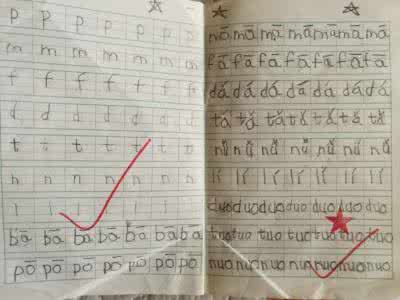 p p p p p p p
m m m m m m m
f f f f f f f
d d d d d d d
t t t t t t t
n n n n n n n
l l l l l l l
bā bā bā bā bā bā bā
pō pō pō pō pō pō pō
mā mā mā mā mā mā mā
fā fā fā fā fā fā fā
dá dá dá dá dá dá dá
tǎ tǎ tǎ tǎ tǎ tǎ tǎ
nǚ nǚ nǚ nǚ nǚ nǚ nǚ
lí lí lí lí lí lí lí
duo duo duo duo duo duo duo
tuo tuo tuo tuo tuo tuo tuo
nuo nuo nuo nuo nuo nuo nuo